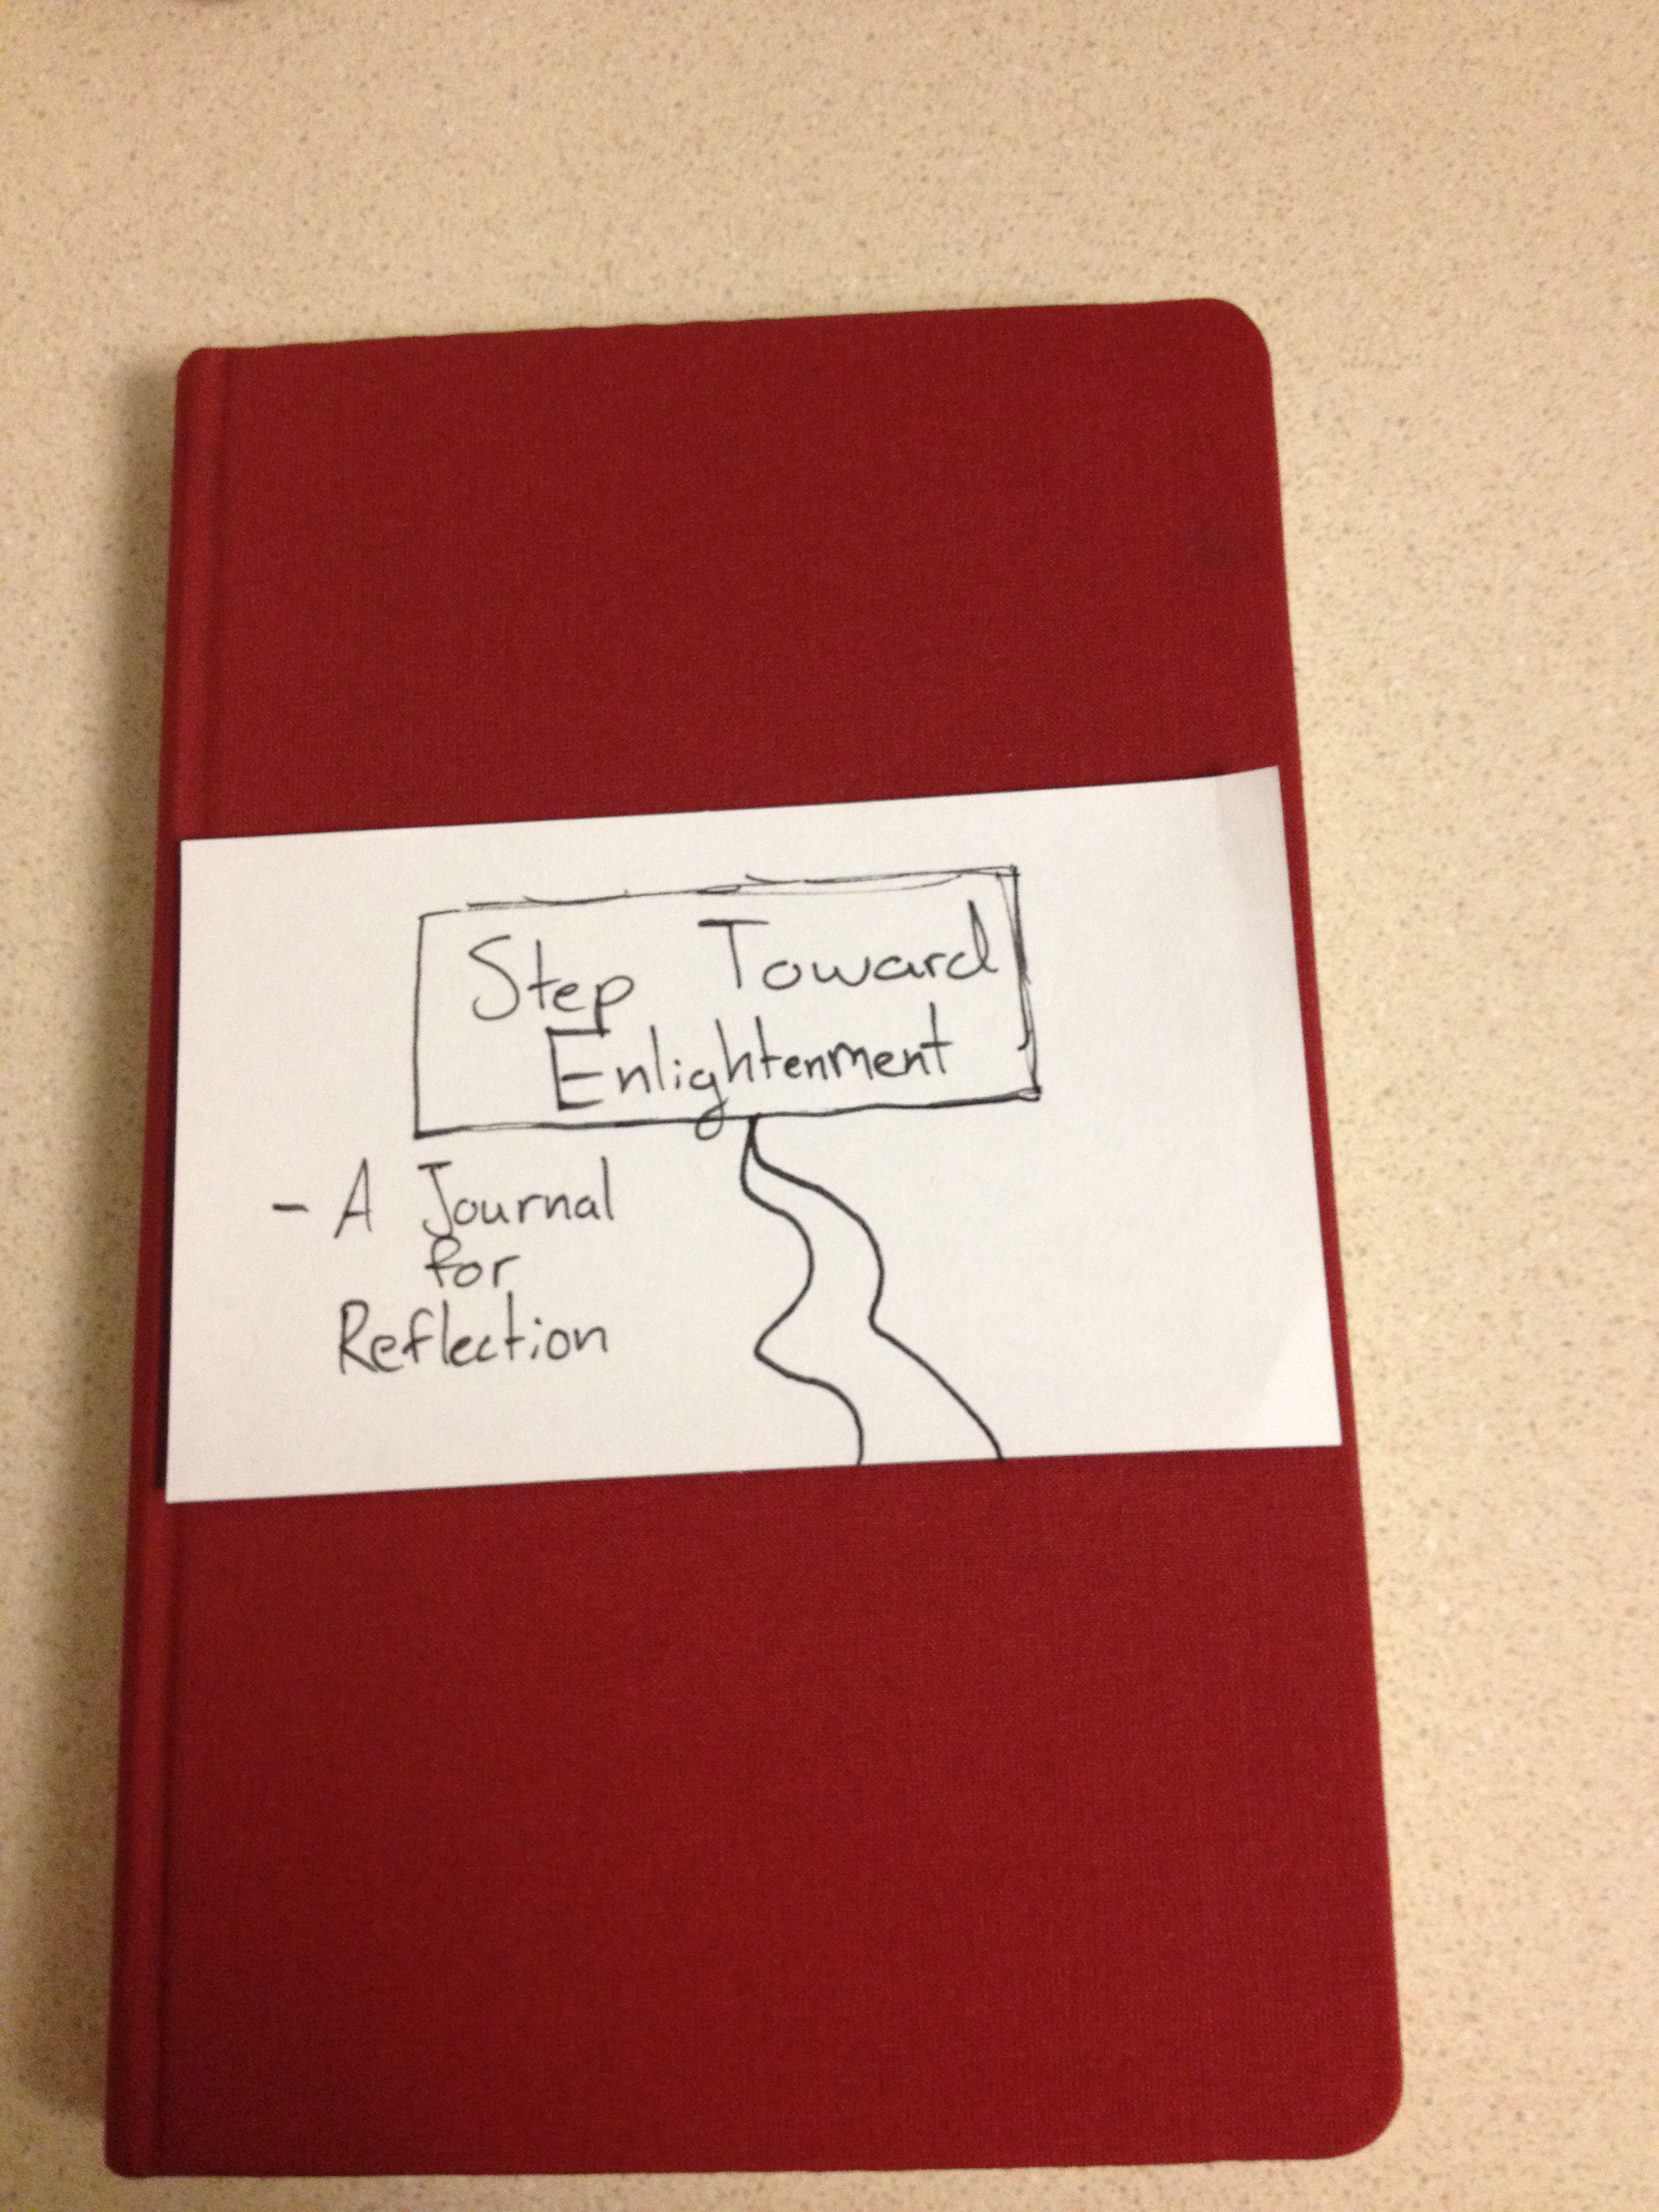 Step Toward
Enlightenment
- A Journal
for
Reflection